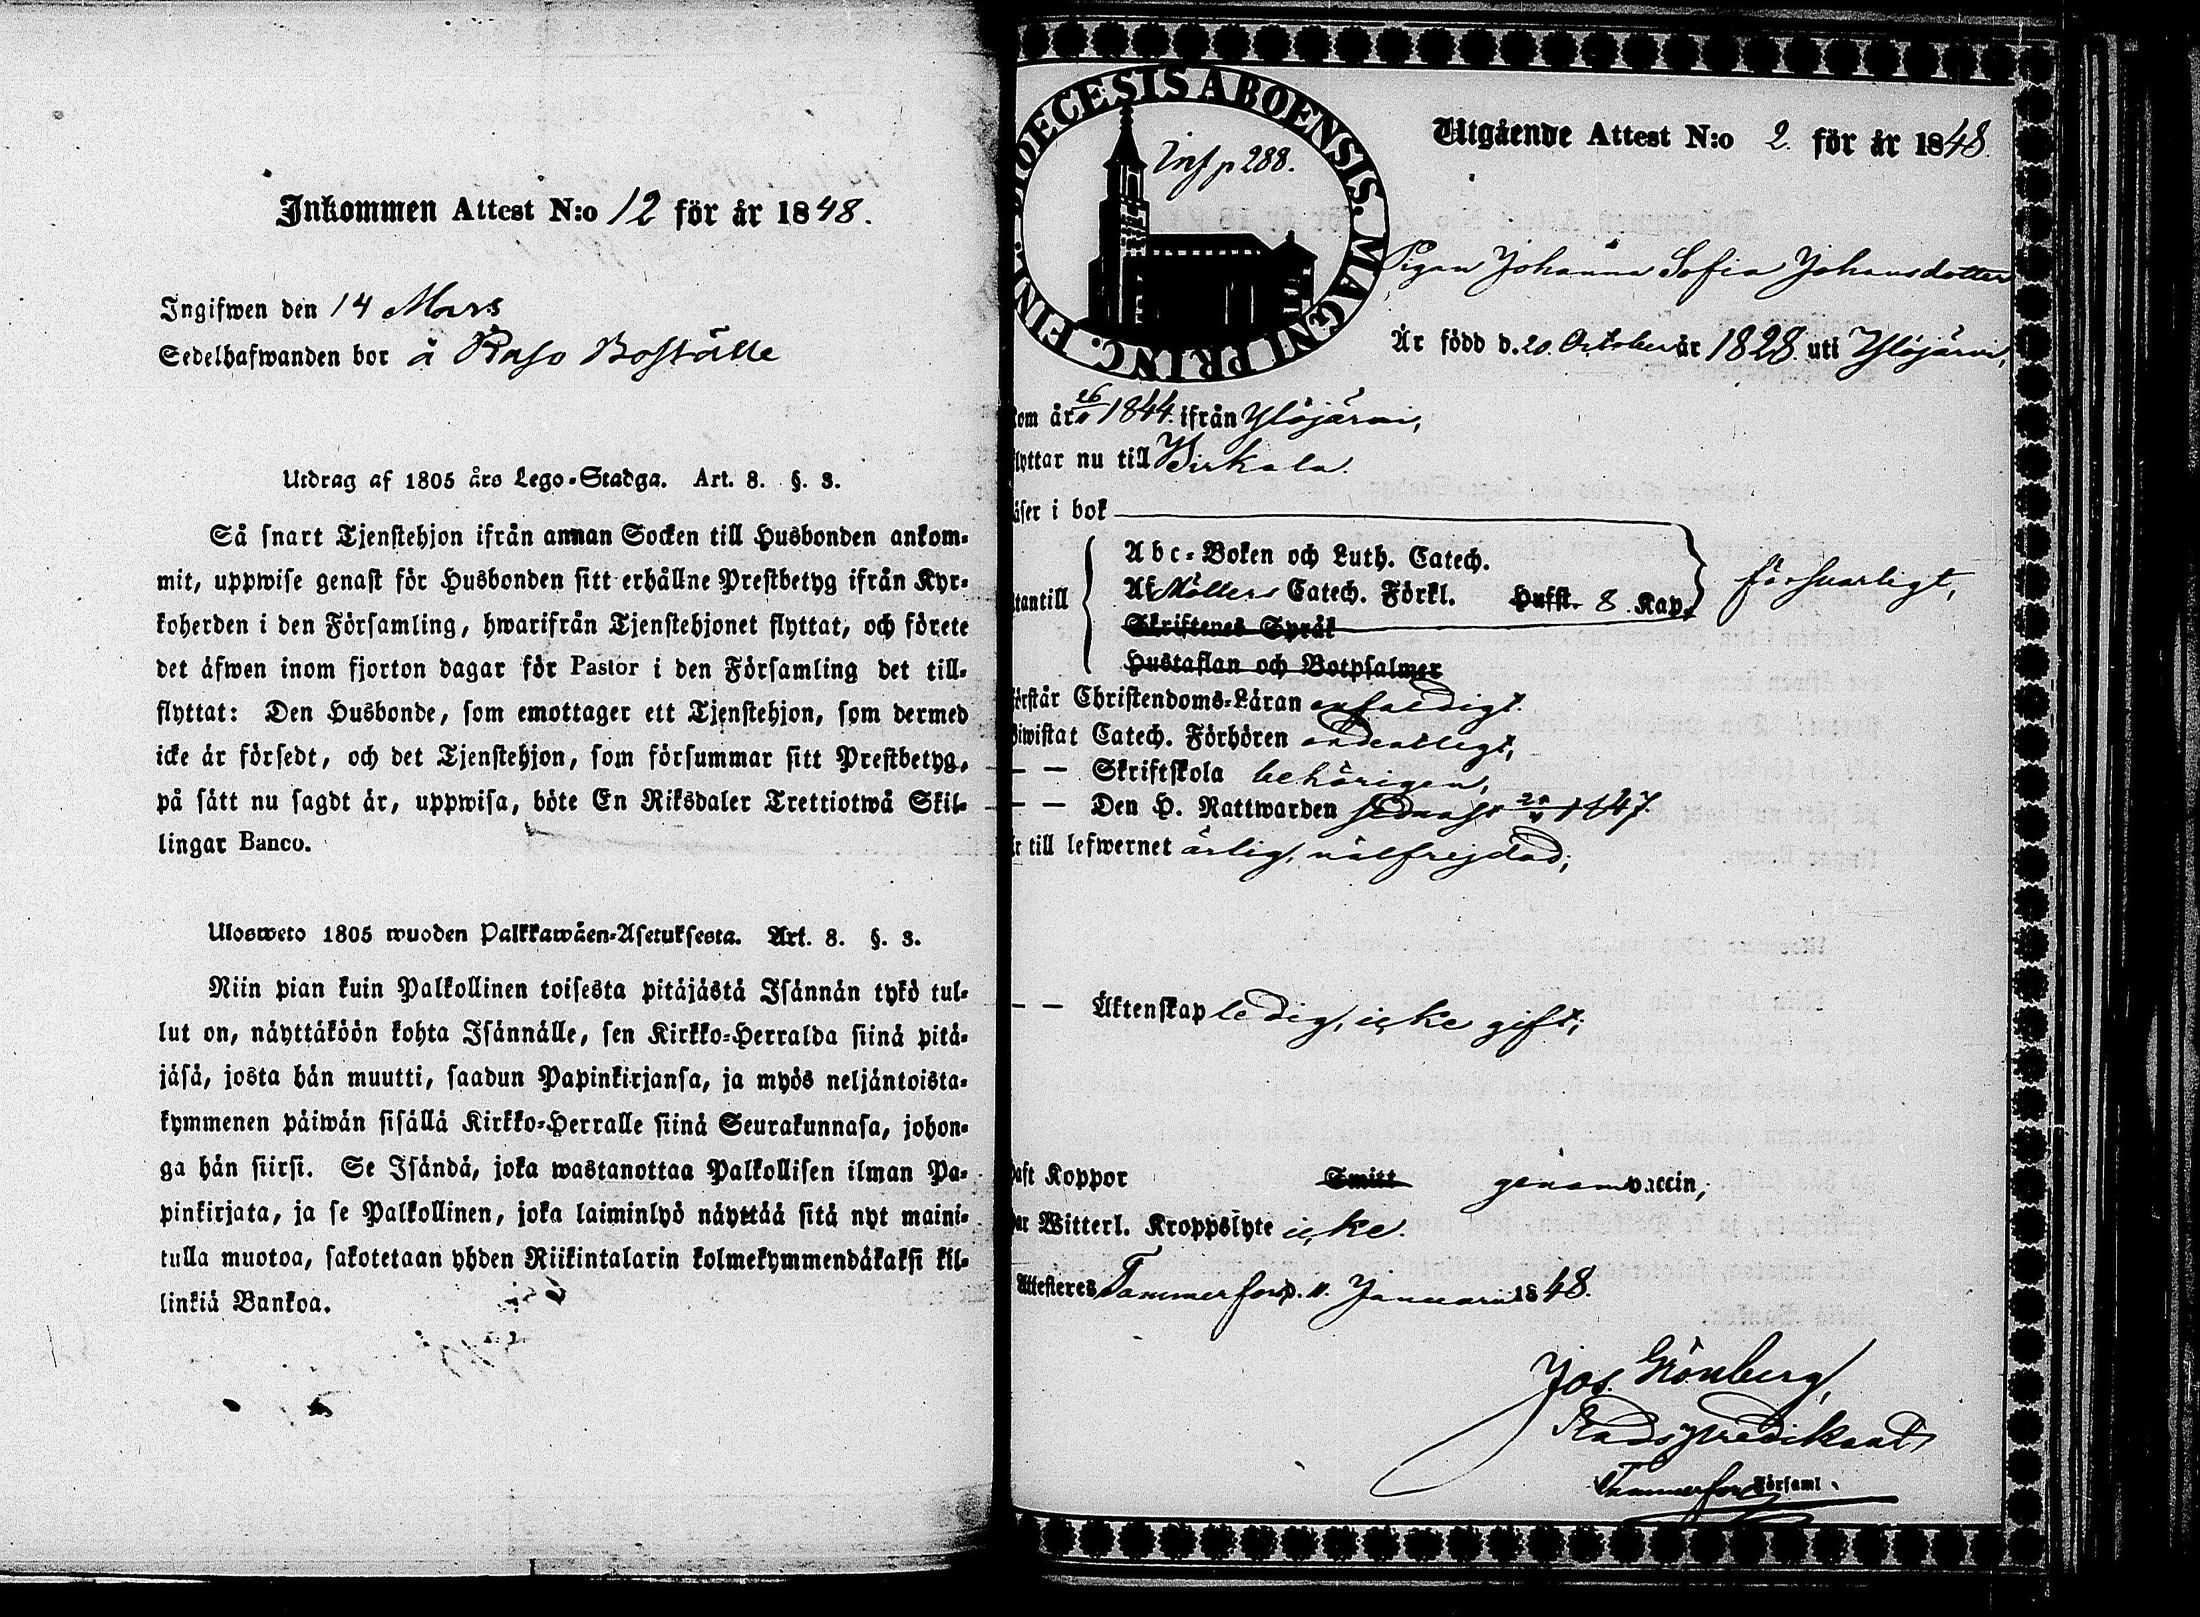 Inkommen Attest N:o 12 för år 1848.
Ingifwen den 14 Mars
Sedelhafwanden bor å Boställe
Utdrag af 1805 års Lego-Stadga. Art. 8. §. 3.
Så snart Tjenstehjon ifrån annan Socken till Husbonden ankom-
mit, uppwise genast för Husbonden sitt erhållne Prestbetyg ifrån Kyr-
koherden i den Församling, hwarifrån Tjenstehjonet flyttat, och förete
det äfwen inom fjorton dagar för Pastor i den Församling det till-
flyttat: Den Husbonde, som emottager ett Tjenstehjon, som dermed
icke är försedt, och det Tjenstehjon, som försummar sitt Prestbetyg,
på sätt nu sagdt är, uppwisa, böte En Riksdaler Trettiotwå Skil-
lingar Banco.
Ulosweto 1805 wuoden Palkkawäen-Asetuksesta. Art. 8. §. 3.
Niin pian kuin Palkollinen toisesta pitäjästä Isännän tykö tul-
lut on, näyttäköön kohta Isännälle, sen Kirkko-Herralda siinä pitä-
jäsä, josta hän muutti, saadun Papinkirjansa, ja myös neljäntoista-
kymmenen päiwän sisällä Kirkko-Herralle siinä Seurakunnasa, johon-
ga hän siirsi. Se Isändä, joka wastanottaa Palkollisen ilman Pa-
pinkirjata, ja se Palkollinen, joka laiminlyö näyttää sitä nyt maini-
tulla muotoa, sakotetaan yhden Riikintalarin kolmekymmendäkaksi kil-
linkiä Bankoa.
DIOECESIS ABOENSIS. MAGNI PRINC. FINL.
Inf p 288.
Utgående Attest N:o 2. för år 1848.
Pigan Johanna Sofia Johansdotter
Är född d. 20. October år 1828. uti Ylöjärvi,
kom år 1844. ifrån Ylöjärvi,
flyttar nu till Birkala.
läser i bok
Abc-Boken och Luth. Catech.
Af Möllers Catech. Förkl. Hufst. 8. Kap. försvarligt,
utantill
Skriftenes Språk
Hustaflan och Botpsalmer
förstår Christendoms-Läran enfaldigt.
biwistat Catech. Förhören ordentligt,
— — Skriftskola behörigen,
— — Den H. Nattwarden sednast 1847.
är till lefwernet ärlig, välfrejdad;
— — Äktenskap ledig, icke gift;
haft Koppor Smitt genom vaccin;
har Witterl. Kroppslyte icke.
Attesteres Tammerfors d. 11. Januari 1848.
Jos. Grönberg,
Stadspredikant
Tammerfors Församl.